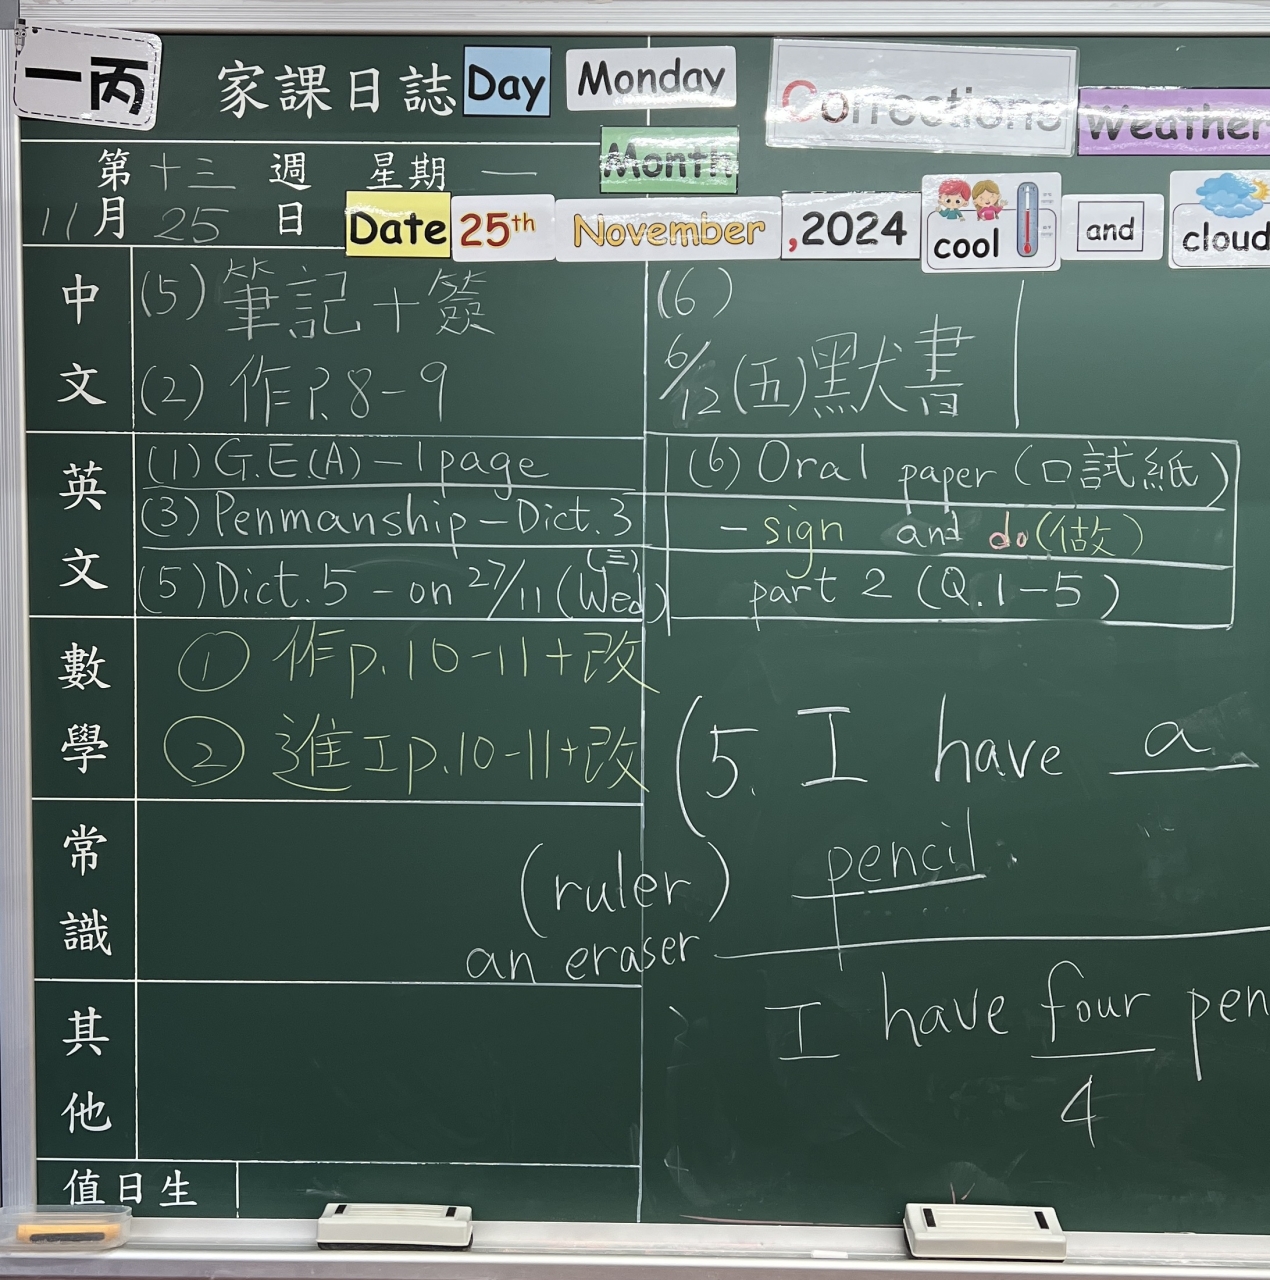 一丙
家課日誌 Day Monday Corrections Weather
Month
第十三週 星期一
11月25日 Date 25th November ,2024 cool and cloud
中文
(5) 筆記+簽
(2) 作P.8-9
(6)
6/12(五)默書
英文
(1) G.E.(A) – 1 page
(3) Penmanship – Dict.3
(5) Dict.5 – on 27/11 (Wed)
(三)
(6) Oral paper (口試紙)
– sign and do(做)
part 2 (Q.1–5)
數學
① 作p.10-11+改
② 進工p.10-11+改
(5. I have a
pencil.
常識
(ruler)
an eraser
I have four pen
4
其他
值日生